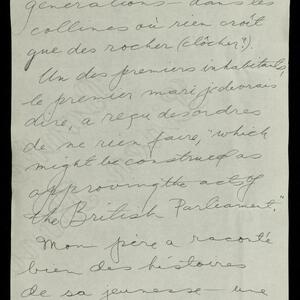 générations – dans les
collines où rien croit
que des rocher (clôcher?).
Un des premiers inhabitants,
le premier mari je devrais
dire, a reçu des ordres
de ne rien faire, "which
might be construed as
approving the acts of
the British Parliament."
Mon père a raconté
bien des histoires
de sa jeunesse – une